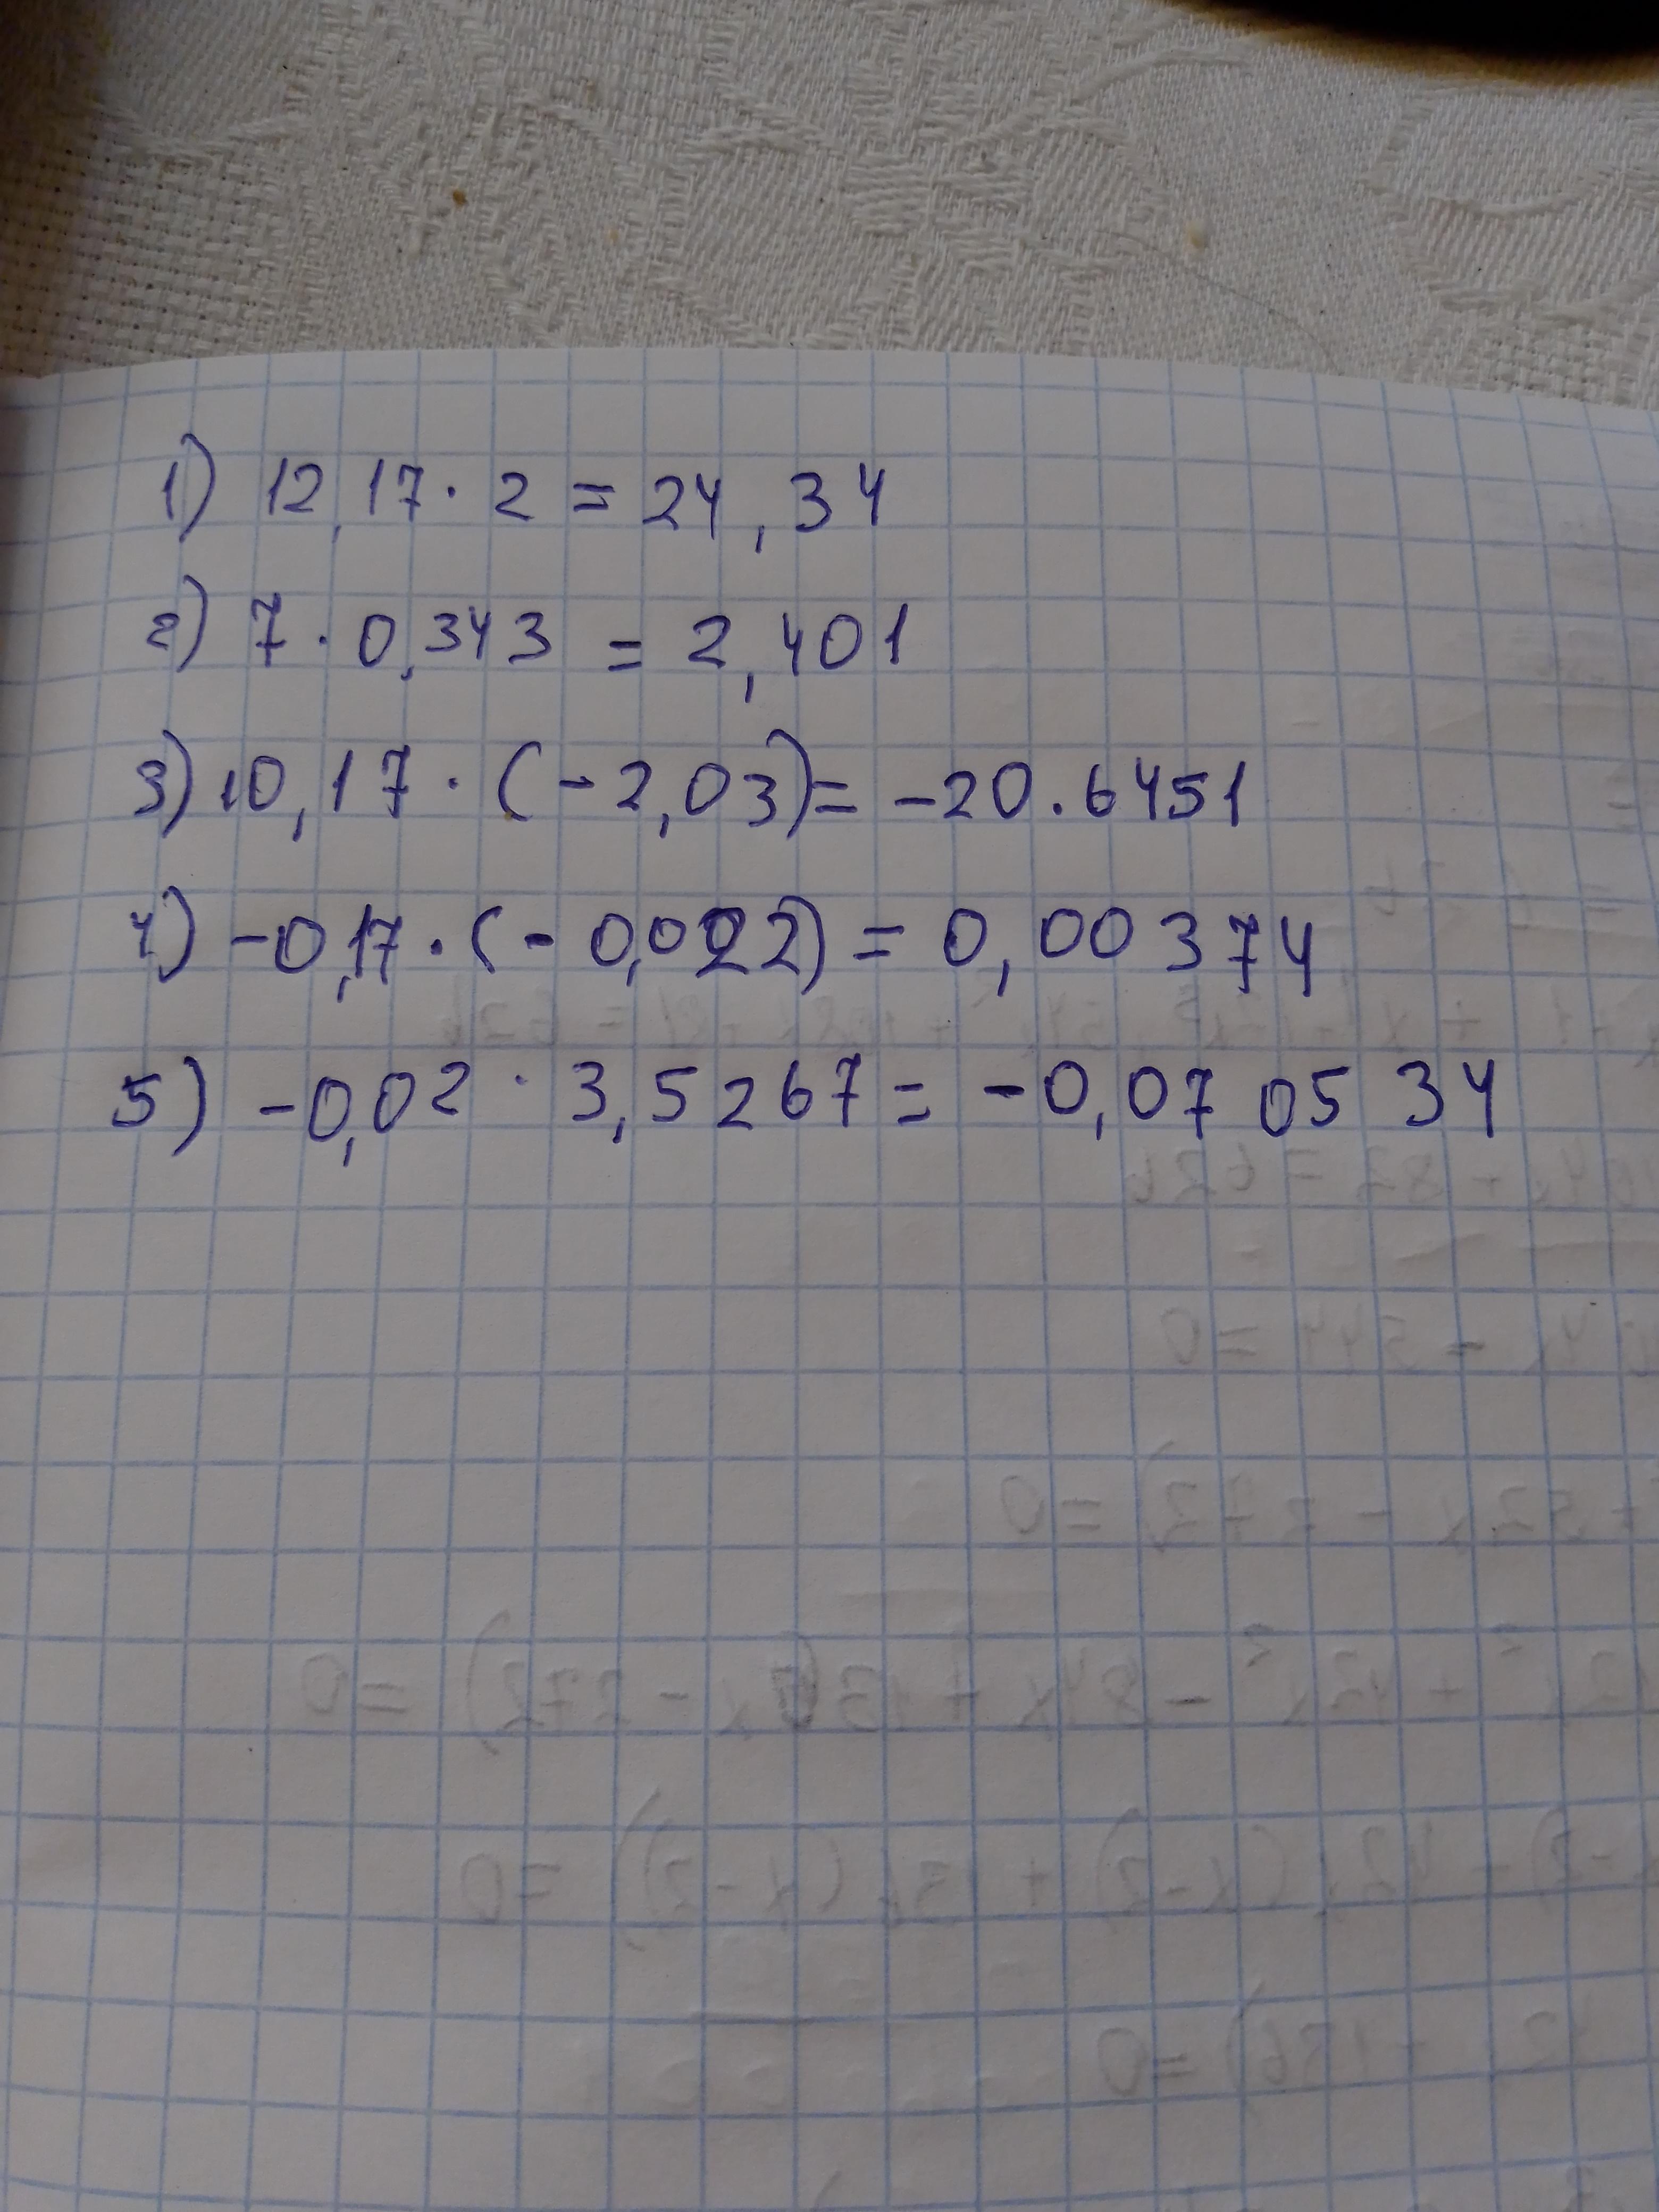 1) 12,17 · 2 = 24,34
2) 7 · 0,343 = 2,401
3) 10,17 · (-2,03) = -20.6451
4) -0,17 · (-0,022) = 0,00374
5) -0,02 · 3,5267 = -0,070534